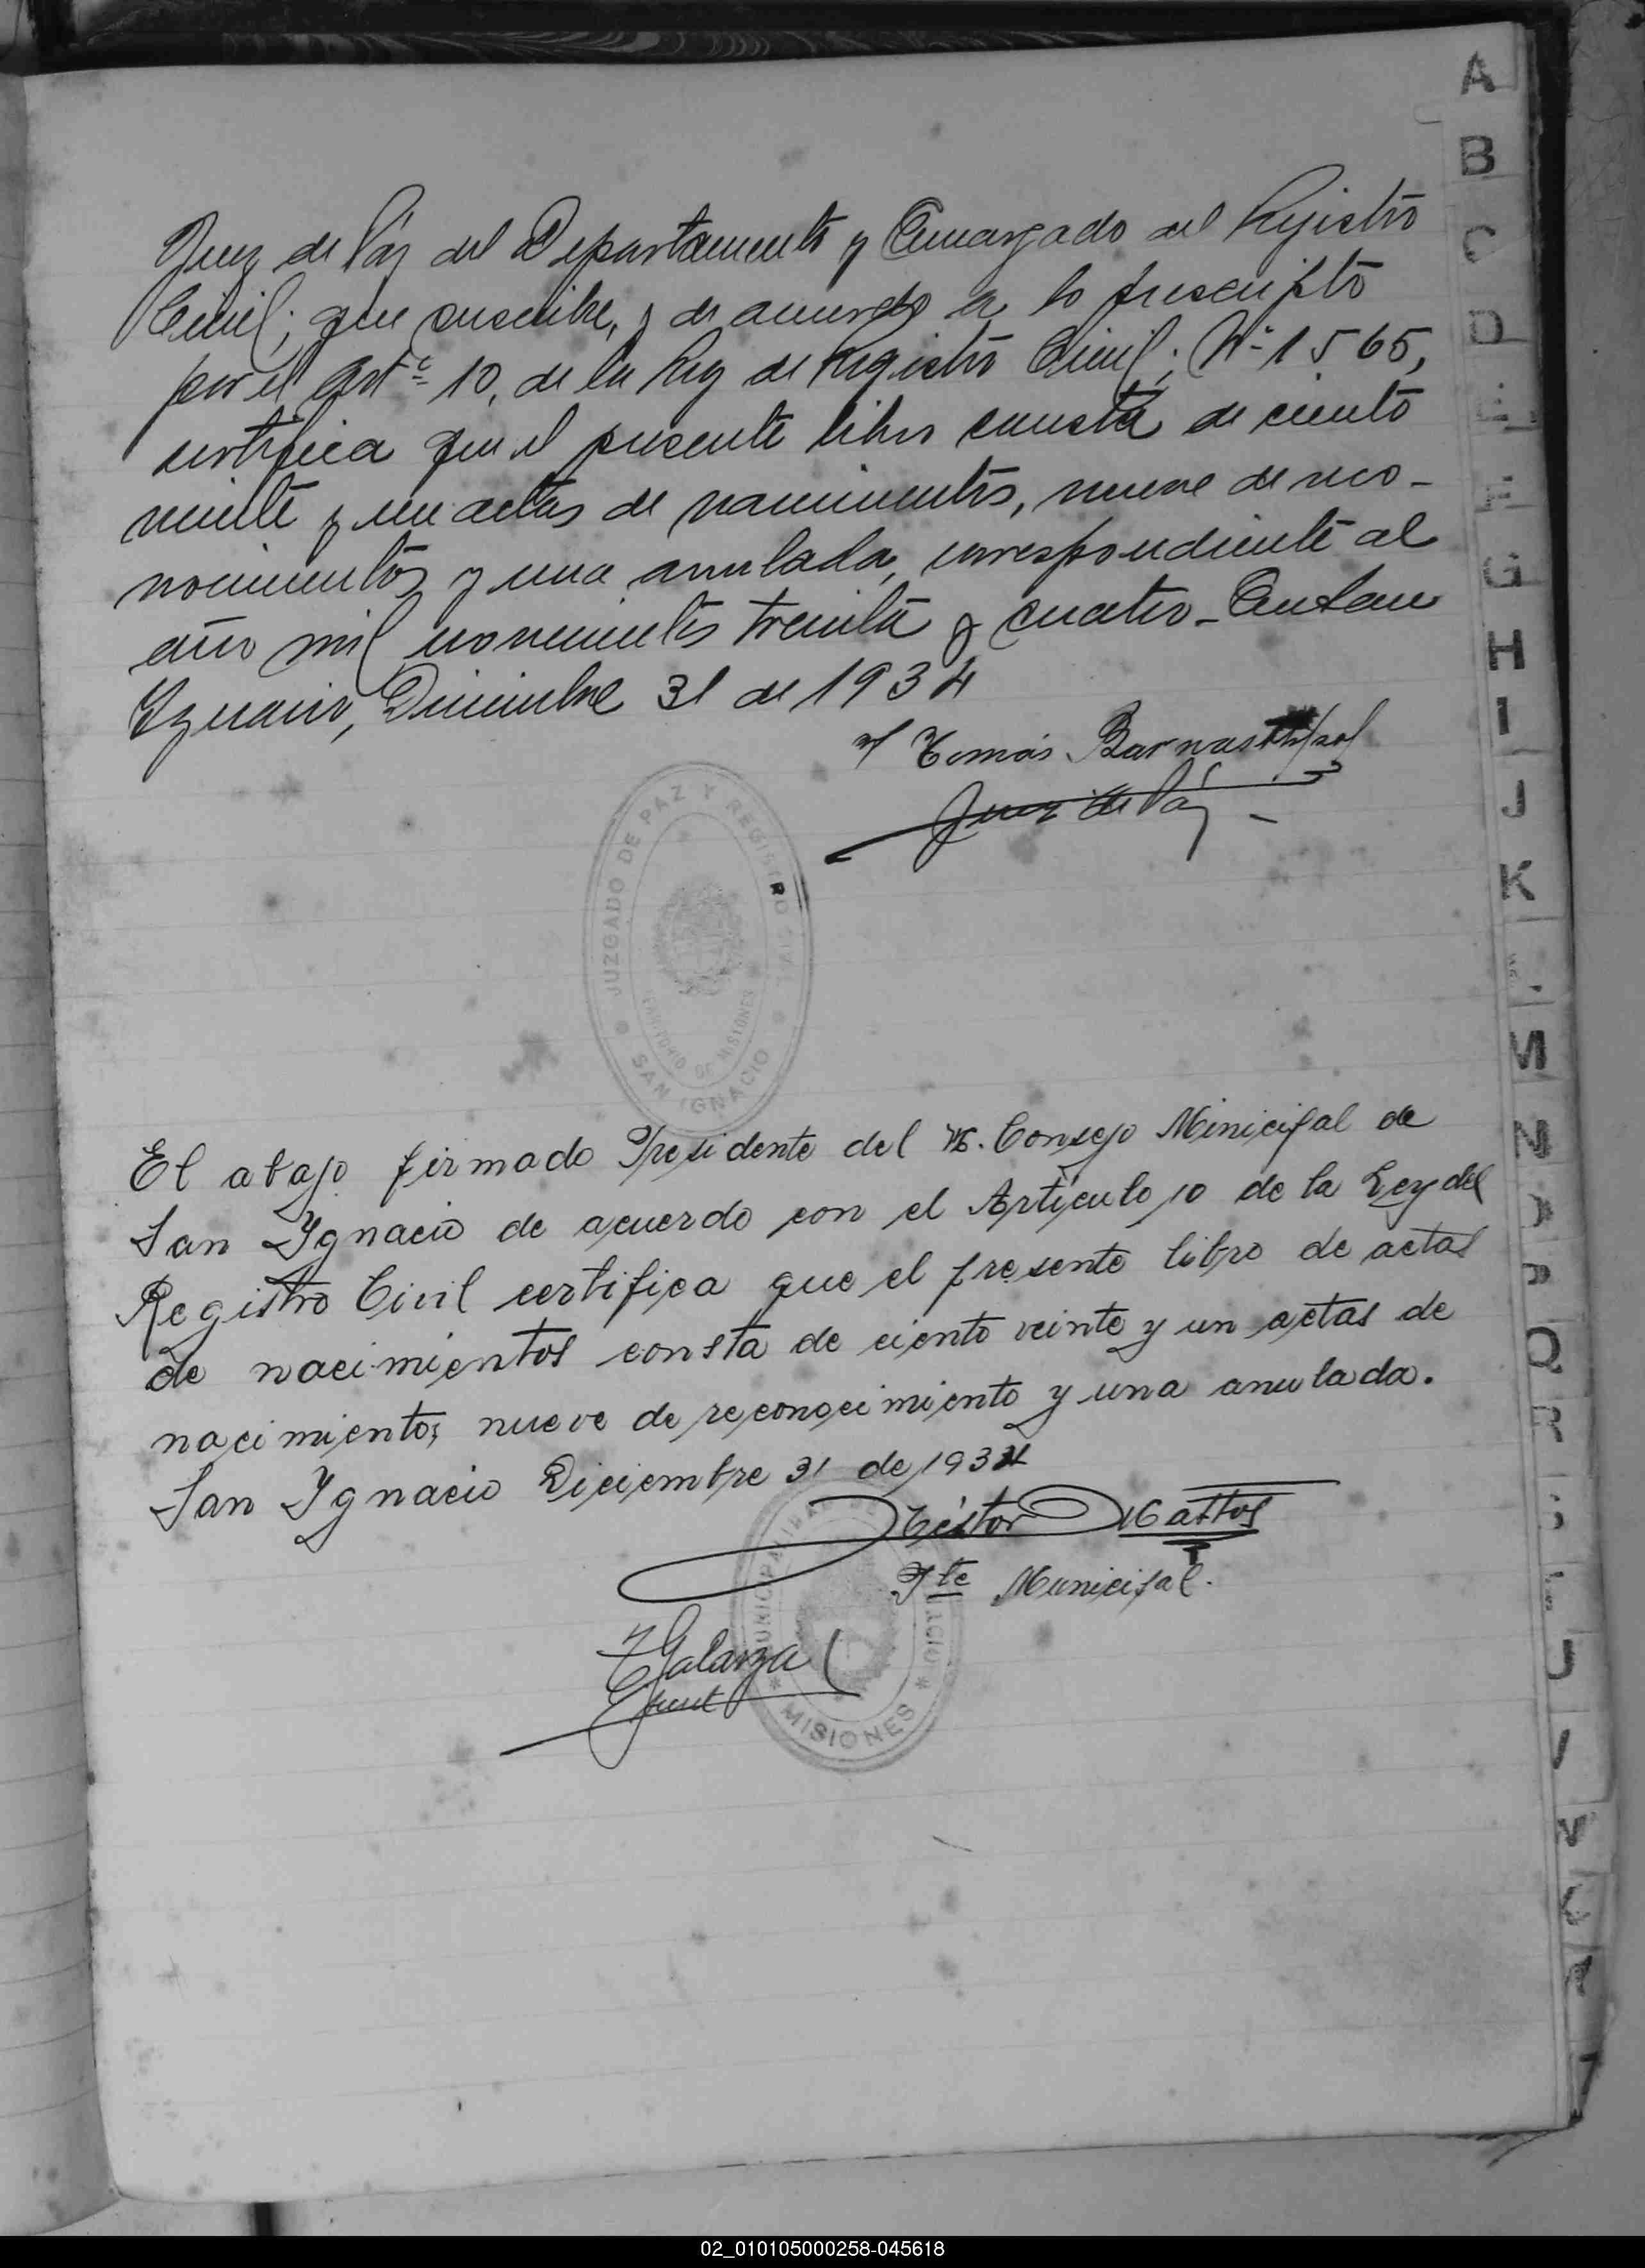 Juez de Páz del Departamento y Encargado del Registro
Civil; que suscribe, y de acuerdo a lo prescripto
por el Artº 10, de la Ley de Registro Civil; Nº 1565,
certifica que el presente libro consta de ciento
veinte y un actas de nacimientos, nueve de reco-
nocimientos y una anulada, correspondiente al
año mil novecientos treinta y cuatro_ San
Ygnacio, Diciembre 31 de 1934
Tomás
Juez de Páz
JUZGADO DE PAZ Y REGISTRO CIVIL
TERRITORIO DE MISIONES
SAN IGNACIO
El abajo firmado Presidente del H. Consejo Minicipal de
San Ygnacio de acuerdo con el Artículo 10 de la Ley del
Registro Civil certifica que el presente libro de actas
de nacimientos consta de ciento veinte y un actas de
nacimientos, nueve de reconocimiento y una anulada.
San Ygnacio Diciembre 31 de 1934
Néstor Mattos
Pte Municipal.
Galarza
MISIONES
A
B
C
D
E
F
G
H
I
J
K
M
N
P
Q
R
02_010105000258-045618